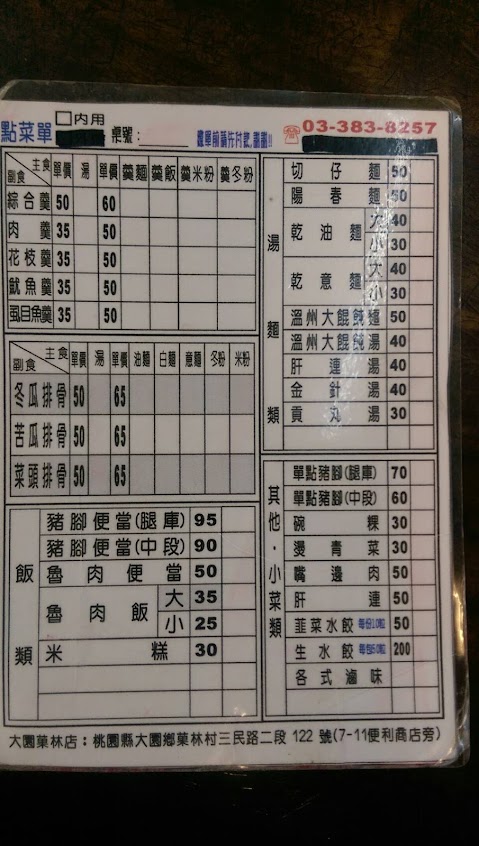 點菜單 □內用 桌號:______ 點單前請先付款,謝謝!! ☎03-383-8257
副食 主食 單價 湯 單價 羹麵 羹飯 羹米粉 羹冬粉
綜合羹 50 60
肉羹 35 50
花枝羹 35 50
魷魚羹 35 50
虱目魚羹 35 50
副食 主食 單價 湯 單價 油麵 白麵 意麵 冬粉 米粉
冬瓜排骨 50 65
苦瓜排骨 50 65
菜頭排骨 50 65
飯類
豬腳便當(腿庫) 95
豬腳便當(中段) 90
魯肉便當 50
魯肉飯 大 35
小 25
米糕 30
湯麵類
切仔麵 50
陽春麵 50
乾油麵 大 40
小 30
乾意麵 大 40
小 30
溫州大餛飩麵 50
溫州大餛飩湯 40
肝連湯 40
金針湯 40
貢丸湯 30
其他·小菜類
單點豬腳(腿庫) 70
單點豬腳(中段) 60
碗粿 30
燙青菜 30
嘴邊肉 50
肝連 50
韮菜水餃 每份10粒 50
生水餃 每包50粒 200
各式滷味
大園菓林店：桃園縣大園鄉菓林村三民路二段 122 號(7-11便利商店旁)